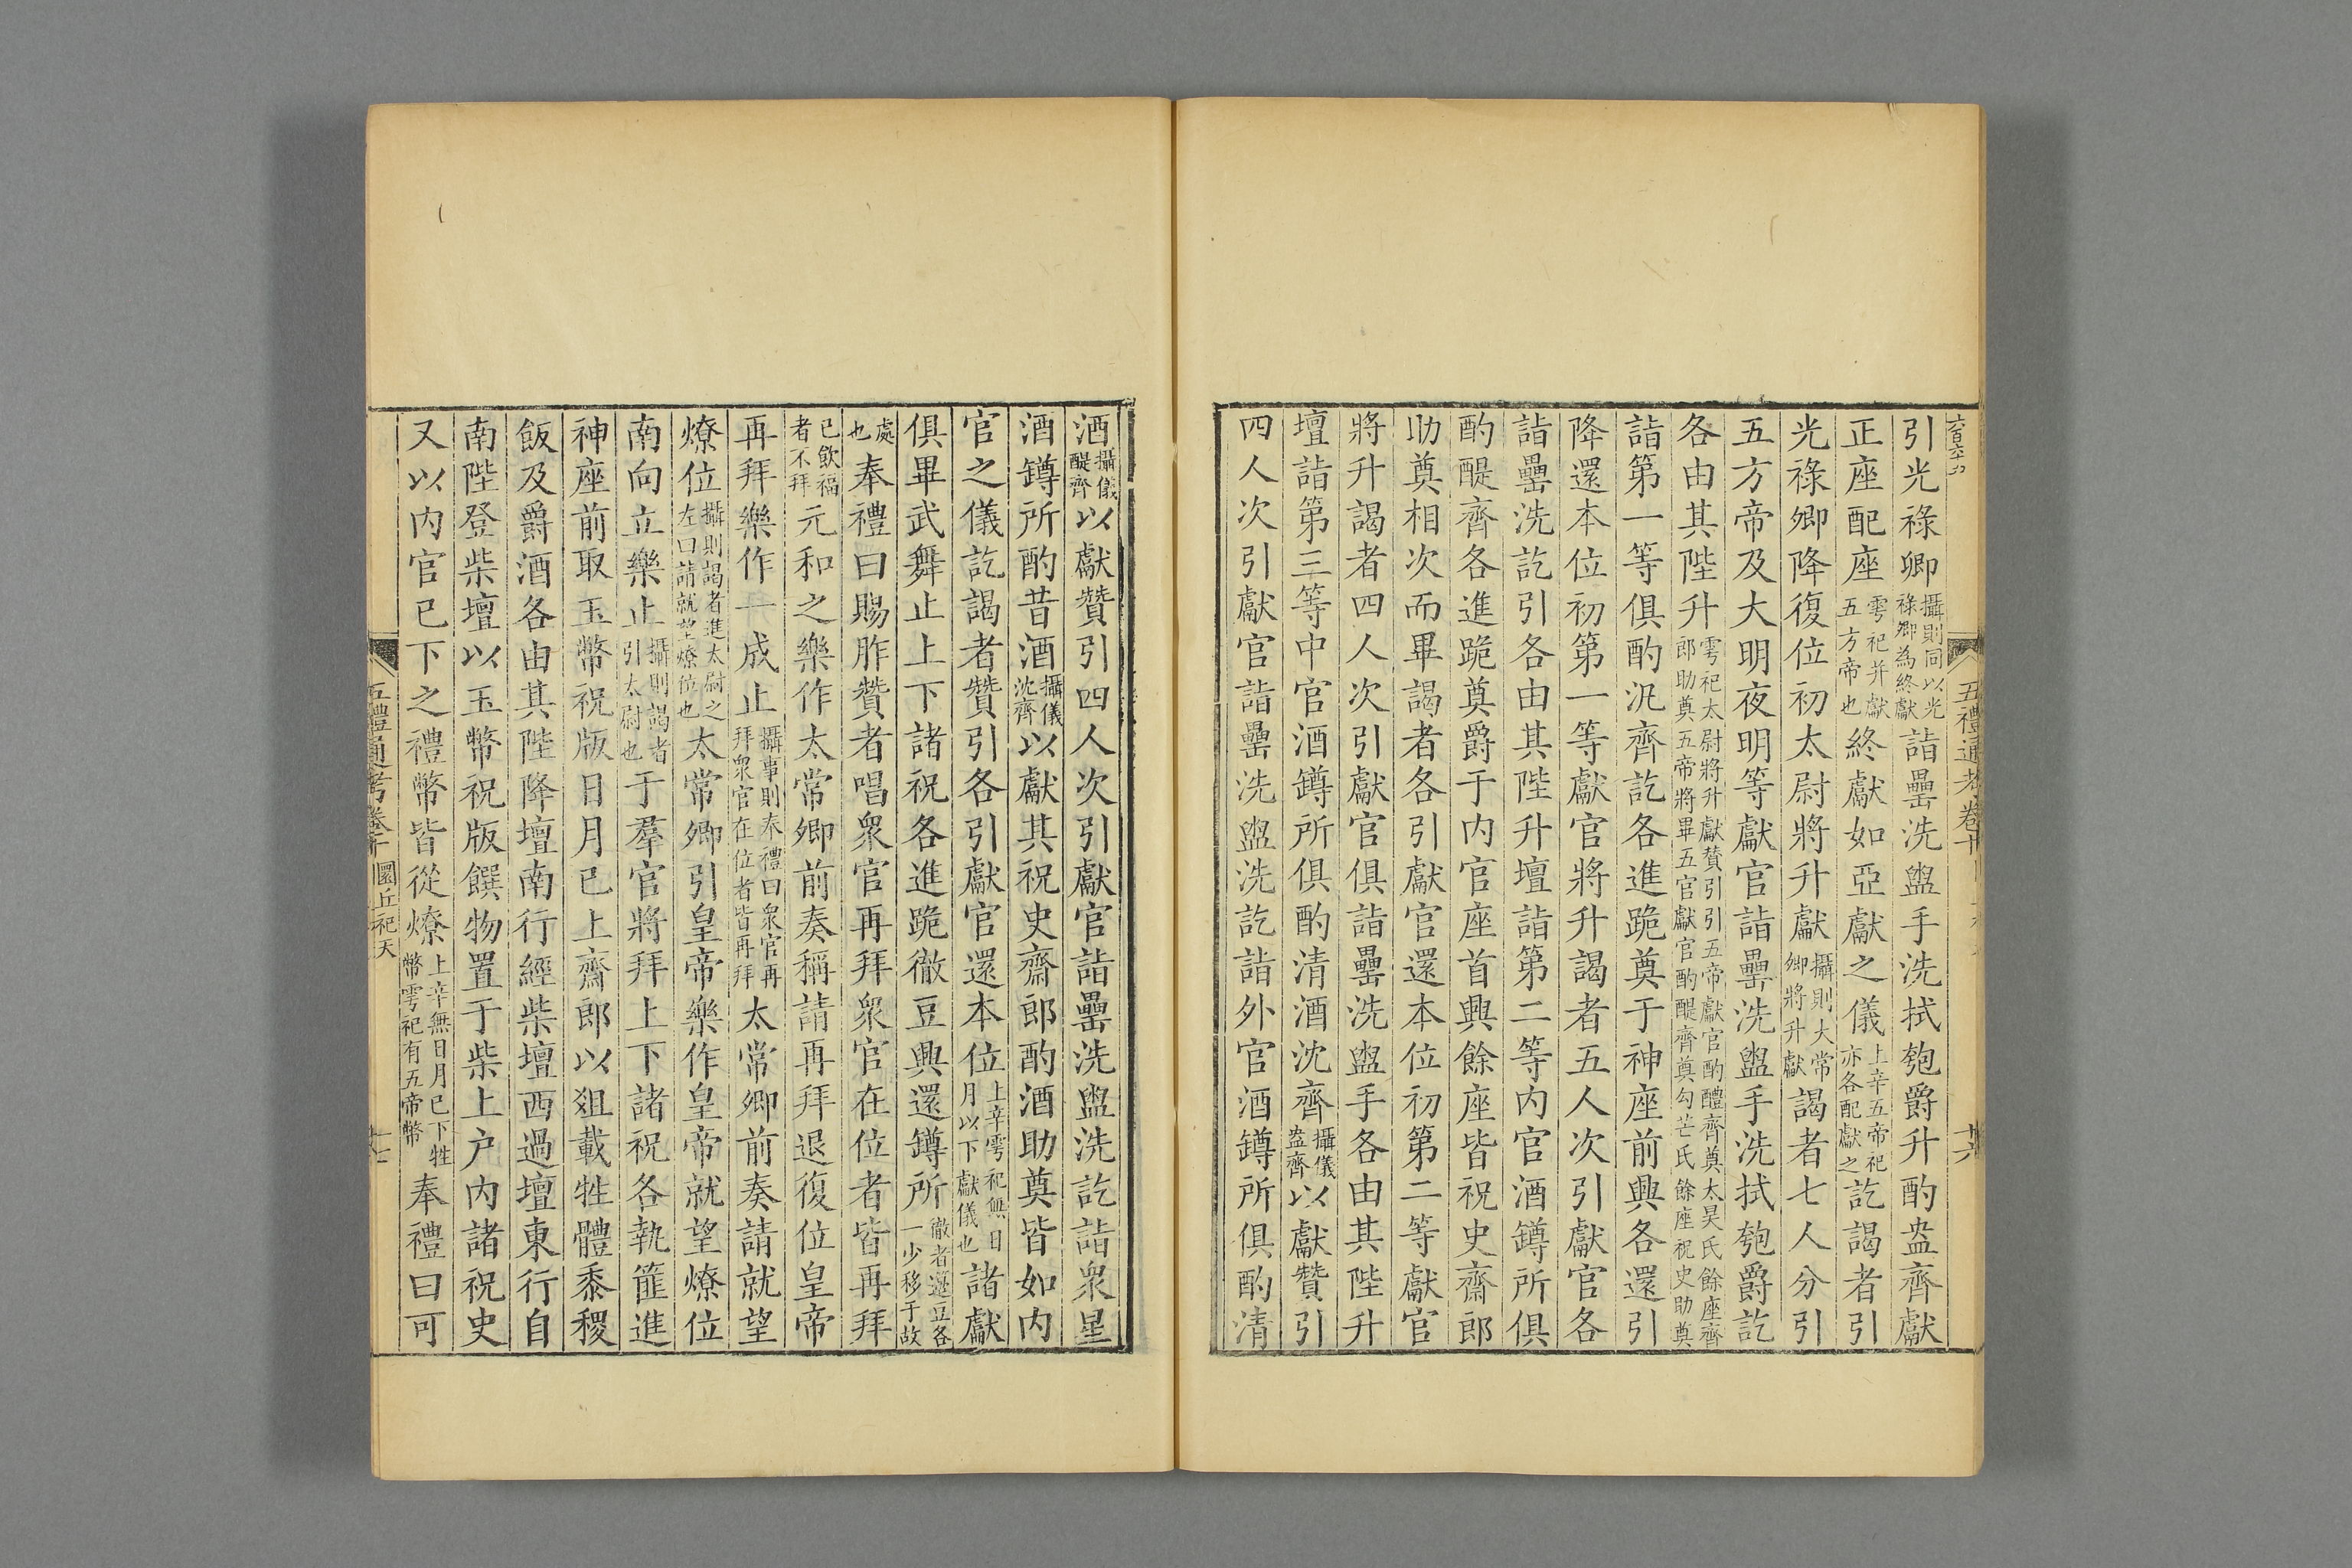 引光祿卿攝則同以光祿卿為終獻詣罍洗盥手洗拭匏爵升酌盎齊獻
正座配座雩祀并獻五方帝也終獻如亞獻之儀上辛五帝祀亦各配獻之訖謁者引
光祿卿降復位初太尉將升獻攝則大常卿將升獻謁者七人分引
五方帝及大明夜明等獻官詣罍洗盥手洗拭匏爵訖
各由其陛升雩祀太尉將升獻贊引引五帝獻官酌醴齊奠太昊氏餘座齊郎助奠五帝將畢五官獻官酌醍齊奠勾芒氏餘座祝史助奠
詣第一等俱酌汎齊訖各進跪奠于神座前興各還引
降還本位初第一等獻官將升謁者五人次引獻官各
詣罍洗訖引各由其陛升壇詣第二等内官酒罇所俱
酌醍齊各進跪奠爵于内官座首興餘座皆祝史齋郎
助奠相次而畢謁者各引獻官還本位初第二等獻官
將升謁者四人次引獻官俱詣罍洗盥手各由其陛升
壇詣第三等中官酒罇所俱酌清酒沈齊攝儀盎齊以獻贊引
四人次引獻官詣罍洗盥洗訖詣外官酒罇所俱酌清
五禮通考卷十
十六
酒攝儀醍齊以獻贊引四人次引獻官詣罍洗盥洗訖詣衆星
酒罇所酌昔酒攝儀沈齊以獻其祝史齋郎酌酒助奠皆如内
官之儀訖謁者贊引各引獻官還本位上辛雩祀無日月以下獻儀也諸獻
俱畢武舞止上下諸祝各進跪徹豆興還罇所徹者籩豆各一少移于故
處也奉禮曰賜胙贊者唱衆官再拜衆官在位者皆再拜
已飲福者不拜元和之樂作太常卿前奏稱請再拜退復位皇帝
再拜樂作一成止攝事則奉禮曰衆官再拜衆官在位者皆再拜太常卿前奏請就望
燎位攝則謁者進太尉之左曰請就望燎位也太常卿引皇帝樂作皇帝就望燎位
南向立樂止攝則謁者引太尉也于羣官將拜上下諸祝各執篚進
神座前取玉幣祝版日月已上齋郎以俎載牲體黍稷
飯及爵酒各由其陛降壇南行經柴壇西過壇東行自
南陛登柴壇以玉幣祝版饌物置于柴上户内諸祝史
又以内官已下之禮幣皆從燎上辛無日月已下牲幣雩祀有五帝幣奉禮曰可
五禮通考卷十 圜丘祀天